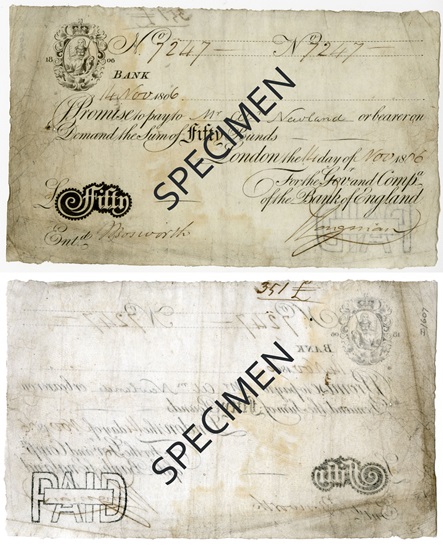 351 £
No 7247 — No 7247 —
18 06
BANK
14 Nov 1806
I Promise to pay to Mr Newland or bearer on
Demand the Sum of Fifty Pounds
London the 14 day of Nov 1806
For the Govr. and Compa.
of the Bank of England
£ Fifty
Entd. Bosworth
PAID
SPECIMEN
351 £
No 7247 — No 7247 —
BANK
PAID
SPECIMEN